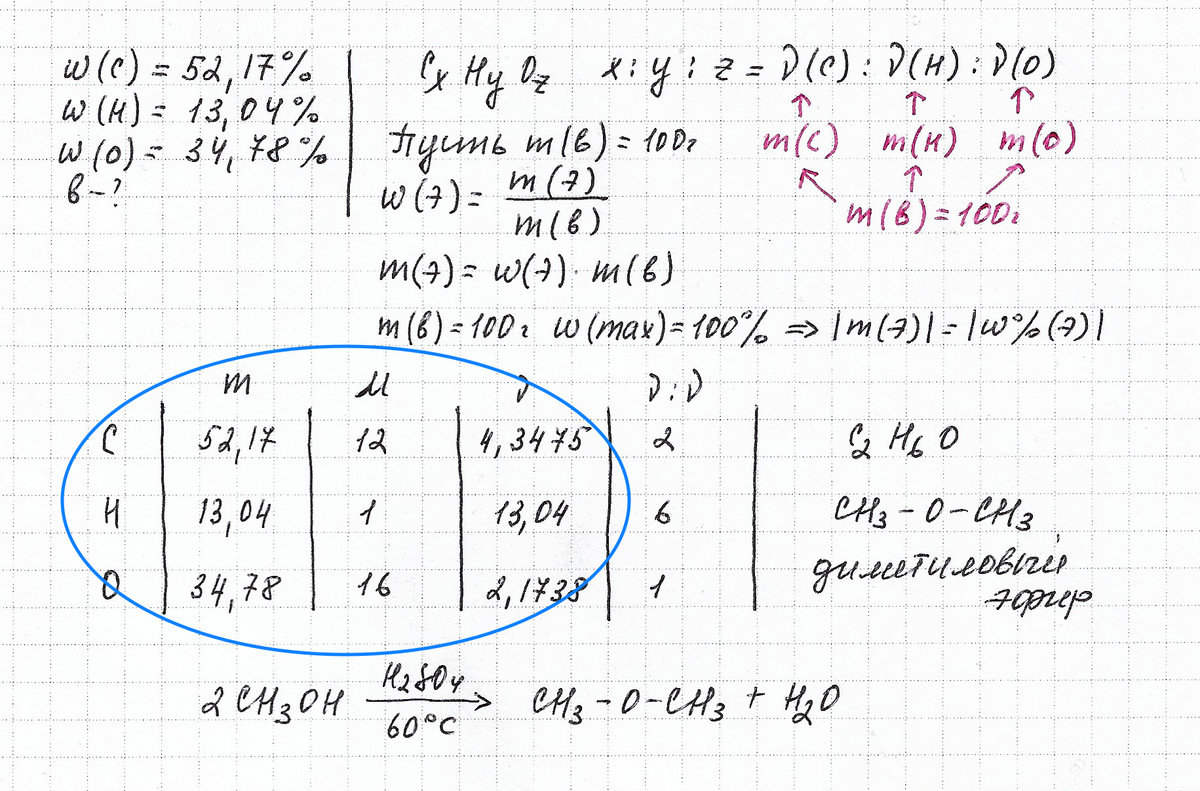 w(C) = 52,17%
w(H) = 13,04%
w(O) = 34,78%
в-?
CxHyOz x:y:z = ν(C):ν(H):ν(O)
↑ ↑ ↑
Пусть m(в) = 100г
m(C) m(H) m(O)
↖ ↑ ↗
m(в) = 100г
w(э) = m(э)/m(в)
m(э) = w(э)·m(в)
m(в) = 100г w(max) = 100% ⇒ |m(э)| = |w%(э)|
m M ν ν:ν
C 52,17 12 4,3475 2
H 13,04 1 13,04 6
O 34,78 16 2,1738 1
C2H6O
CH3-O-CH3
диметиловый
эфир
2CH3OH H2SO4 → CH3-O-CH3 + H2O
60°C